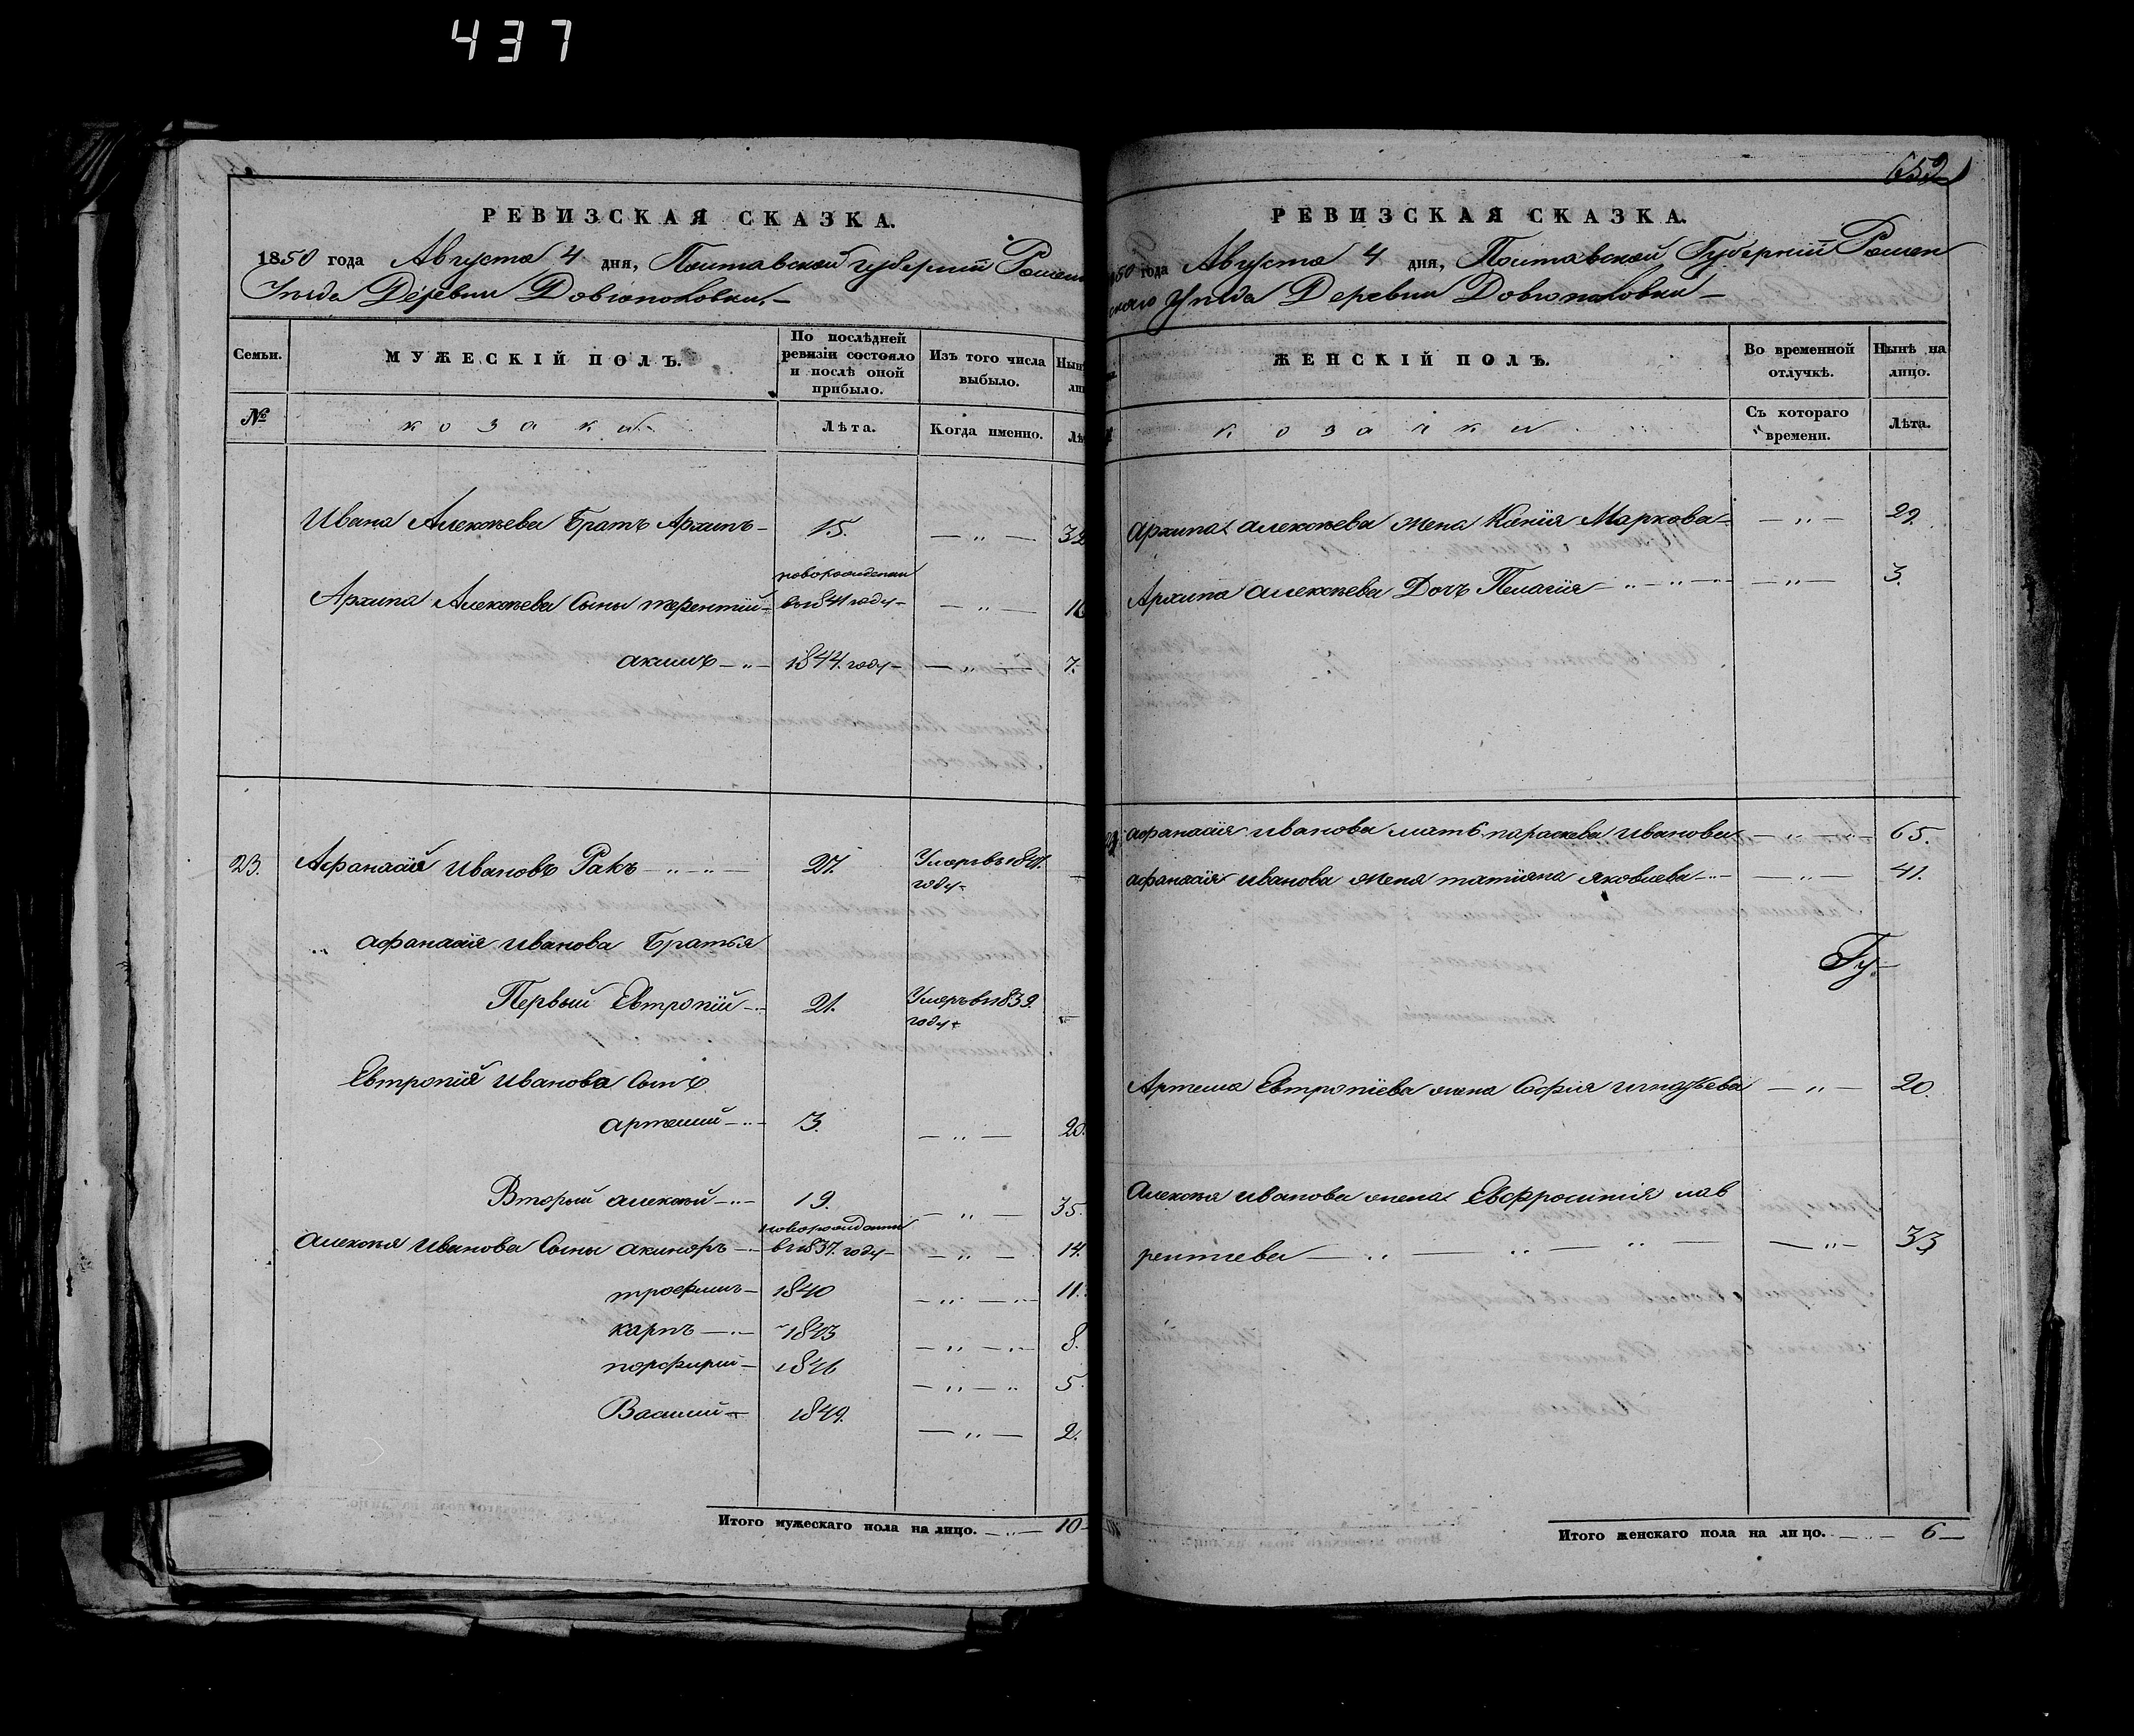 437
РЕВИЗСКАЯ СКАЗКА.
1850 года Августа 4 дня, Полтавской губерніи Ромен
Уѣзда Деревни Довгополовки
Семьи.
МУЖЕСКІЙ ПОЛЪ.
По послѣдней ревизіи состояло и послѣ оной прибыло.
Изъ того числа выбыло.
№
козаки
Лѣта.
Когда именно.
Ивана Алексѣева Братъ Архипъ 15.
Архипа Алексѣева Сыны терентий новорожденны въ 1841 году
акимъ 1844 году 7.
23. Афанасий Ивановъ Ракъ 27. Умеръ въ году
афанасия Иванова Братья
Первый Евтропий 21. Умеръ въ 1839 году
Евтропия Иванова Сынъ
артемий 13. 20.
Вторый алексѣй 19. 35.
алексѣя Иванова Сыны новорожденны въ 1837 году 14.
трофимъ 1840 11.
карпъ 1843 8.
порфирий 1846 5
Василий 1849. 2.
Итого мужескаго пола на лицо. 10
652
РЕВИЗСКАЯ СКАЗКА.
года Августа 4 дня, Полтавской Губерніи Ромен
скаго Уѣзда Деревни Довгополовки
ЖЕНСКІЙ ПОЛЪ.
Во временной отлучкѣ.
Нынѣ на лицо.
козачки
Съ котораго времени.
Лѣта.
Архипа алексѣева жена Ксения Маркова 29.
Архипа алексѣева Дочъ Пелагия 3.
афанасия Иванова мать параскева Иванова 65.
афанасия Иванова жена татияна яковлева 41.
Артема Евтропиева жена София игнатьева 20.
Алексѣя Иванова жена Евфросиния лав
рентиева 33
Итого женскаго пола на лицо. 6